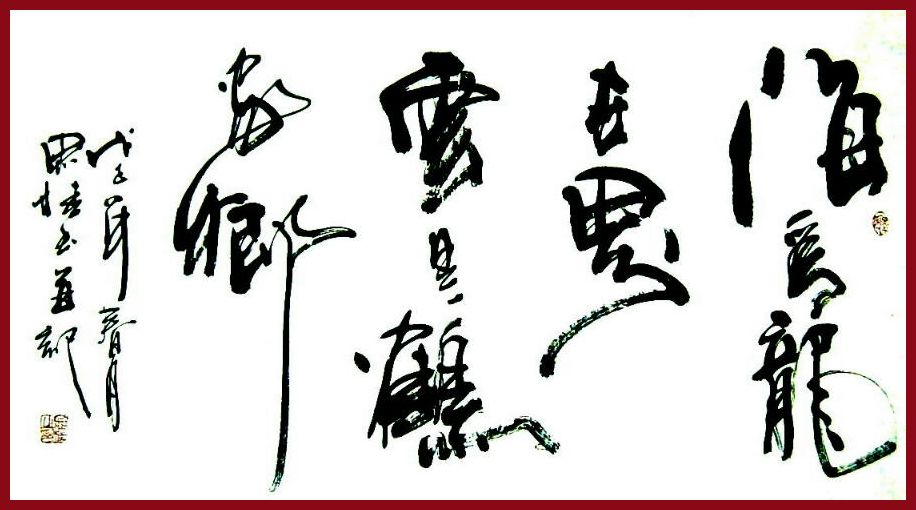 海為龍
世界
雲是鶴
家鄉
戊子年春月